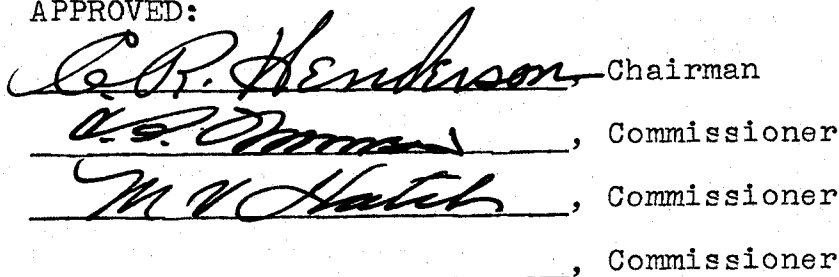 APPROVED:
C. R. Henderson, Chairman
, Commissioner
M V Hatch, Commissioner
, Commissioner